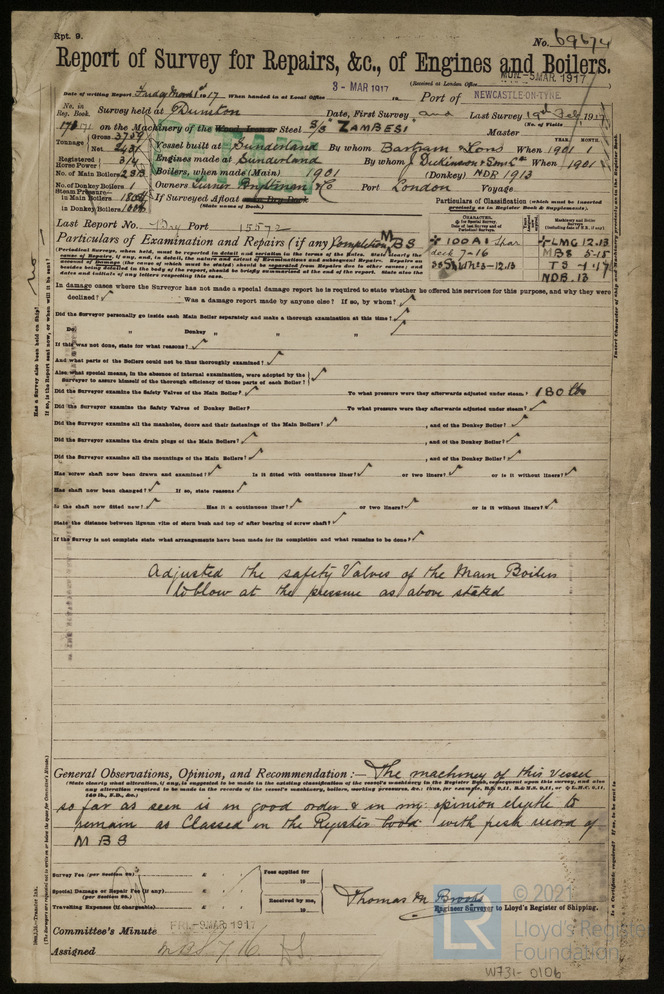 Rpt. 9.
No. 69674
Report of Survey for Repairs, &c., of Engines and Boilers.
(Received at London Office
MON. -5 MAR 1917
3 - MAR 1917
Date of writing Report 1917 When handed in at Local Office 19 Port of NEWCASTLE-ON-TYNE.
No. in Reg. Book. Survey held at Dunston Date, First Survey and Last Survey 19th Feb 1917
(No. of Visits
171 on the Machinery of the Wood, Iron or Steel S/S ZAMBESI Master
Tonnage Gross 3759 Net 2431
Vessel built at Sunderland By whom Bartram & Sons When 1901 1
YEAR. MONTH.
Registered Horse Power 314
Engines made at Sunderland By whom J. Dickinson & Sons Ld When 1901
No. of Main Boilers 2SB Boilers, when made (Main) 1901 (Donkey) NDB 1913
No. of Donkey Boilers 1 Owners Turner Brightman & Co Port London Voyage
Steam Pressure in Main Boilers 180 lb
in Donkey Boilers
If Surveyed Afloat or in Dry Dock
(State name of Dock.)
Particulars of Classification (which must be inserted precisely as in Register Book & Supplements).
Last Report No. Port 15572
Particulars of Examination and Repairs (if any) Completion MBS
+ 100A1
deck 7-16
+LMC 12.13
MBS 5-15
TS 1-17
NDB.13
In damage cases where the Surveyor has not made a special damage report he is required to state whether he offered his services for this purpose, and why they were
declined? Was a damage report made by anyone else? If so, by whom?
Did the Surveyor personally go inside each Main Boiler separately and make a thorough examination at this time?
Do. " Donkey " " "
If this was not done, state for what reasons?
And what parts of the Boilers could not be thus thoroughly examined?
Also what special means, in the absence of internal examination, were adopted by the
Surveyor to assure himself of the thorough efficiency of those parts of each Boiler?
Did the Surveyor examine the Safety Valves of the Main Boiler? To what pressure were they afterwards adjusted under steam? 180 lbs
Did the Surveyor examine the Safety Valves of Donkey Boiler? To what pressure were they afterwards adjusted under steam?
Did the Surveyor examine all the manholes, doors and their fastenings of the Main Boilers? , and of the Donkey Boiler?
Did the Surveyor examine the drain plugs of the Main Boilers? , and of the Donkey Boiler?
Did the Surveyor examine all the mountings of the Main Boilers? , and of the Donkey Boiler?
Has screw shaft now been drawn and examined? Is it fitted with continuous liner? or two liners? or is it without liners?
Has shaft now been changed? If so, state reasons
Is the shaft now fitted new? Has it a continuous liner? or two liners? or is it without liners?
State the distance between lignum vitæ of stern bush and top of after bearing of screw shaft?
If the Survey is not complete state what arrangements have been made for its completion and what remains to be done?
Adjusted the safety Valves of the Main Boilers
to blow at the pressure as above stated
General Observations, Opinion, and Recommendation:— The machinery of this vessel
so far as seen is in good order & in my opinion eligible to
remain as Classed in the Register book with fresh record of
MBS
Survey Fee (per Section 29) £
Fees applied for
19
Special Damage or Repair Fee (if any) (per Section 29.) £
Received by me,
Travelling Expenses (if chargeable) £
19
Thomas M Brooks
Engineer Surveyor to Lloyd's Register of Shipping.
Committee's Minute FRI. -9 MAR 1917
Assigned
© 2021
LR
Lloyd's Register
Foundation
W731-0106